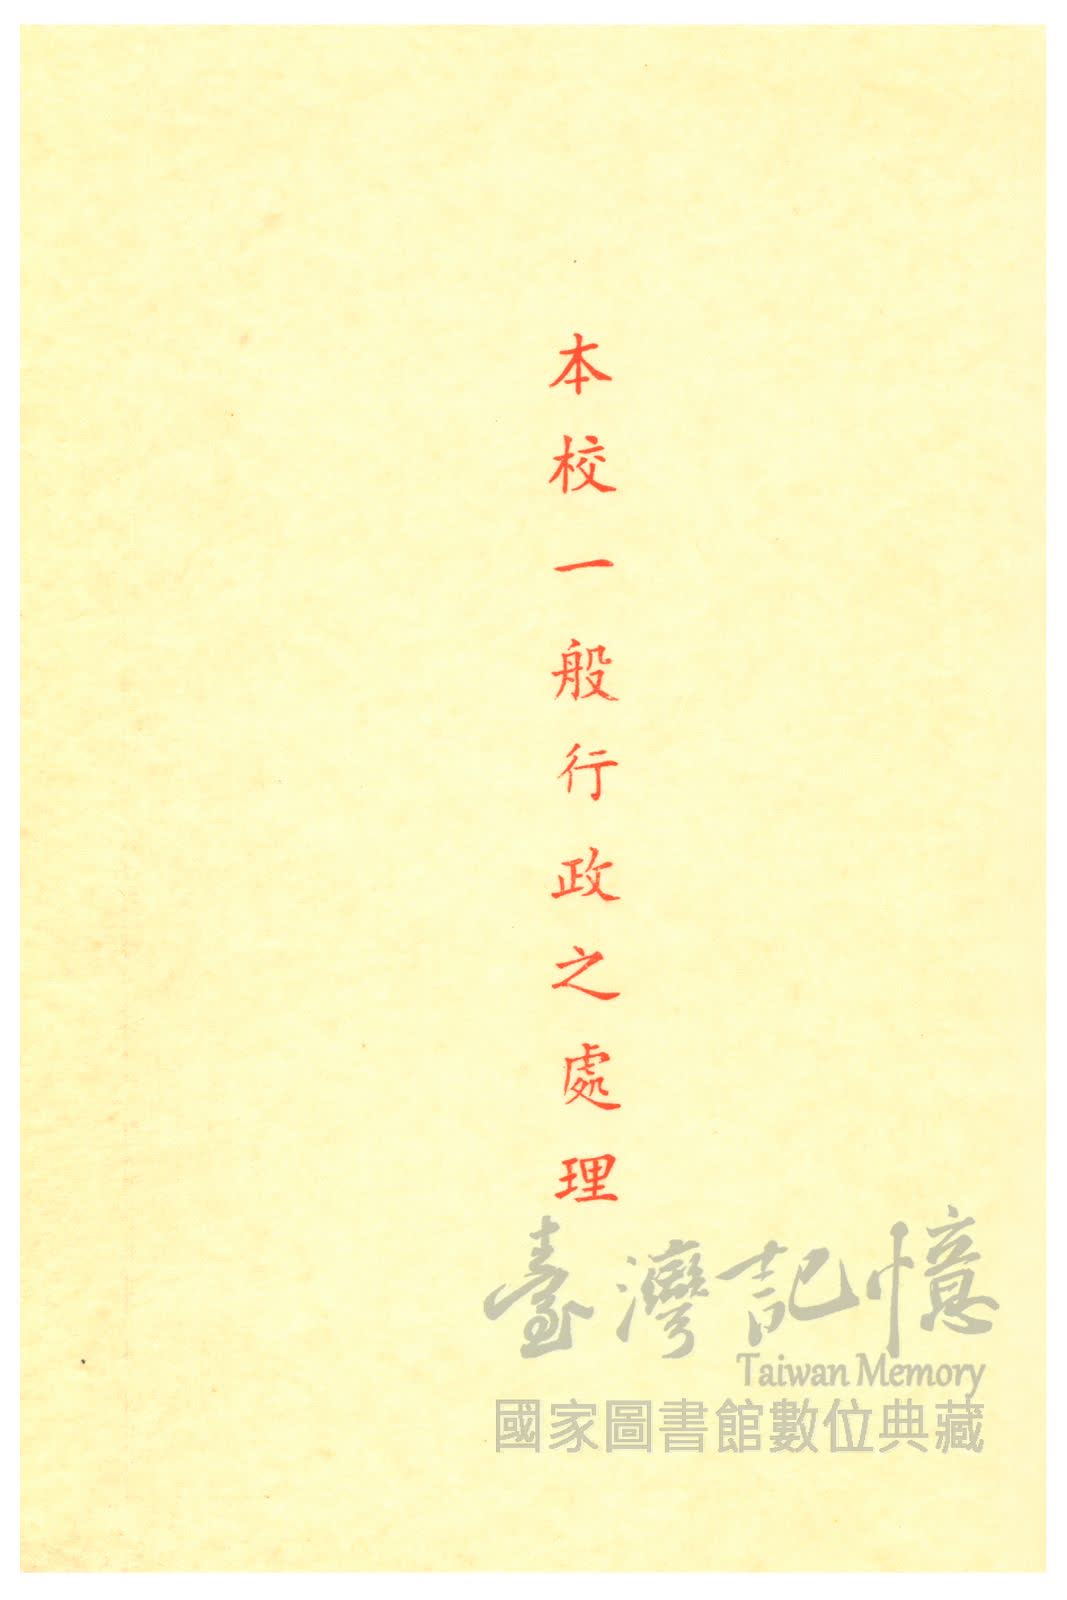 本校一般行政之處理
臺灣記憶
Taiwan Memory
國家圖書館數位典藏